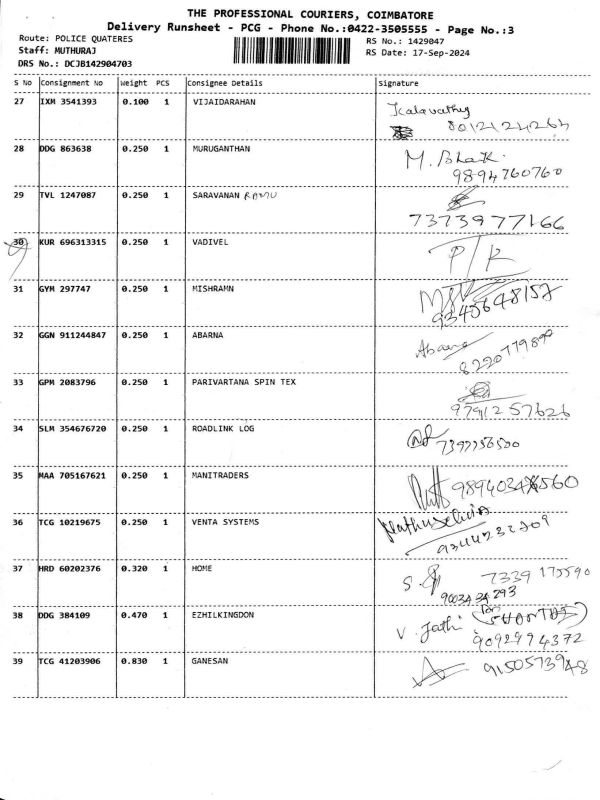 THE PROFESSIONAL COURIERS, COIMBATORE
Delivery Runsheet - PCG - Phone No.:0422-3505555 - Page No.:3
Route: POLICE QUATERES RS No.: 1429047
Staff: MUTHURAJ RS Date: 17-Sep-2024
DRS No.: DCJB142904703
S No Consignment No Weight PCS Consignee Details Signature
27 IXM 3541393 0.100 1 VIJAIDARAHAN Kalavathy
28 DDG 863638 0.250 1 MURUGANTHAN M.
9894760760
29 TVL 1247087 0.250 1 SARAVANAN RAMU
7373977166
30 KUR 696313315 0.250 1 VADIVEL P/K
31 GYM 297747 0.250 1 MISHRAMN
9345648157
32 GGN 911244847 0.250 1 ABARNA Abarna
33 GPM 2083796 0.250 1 PARIVARTANA SPIN TEX
9791257626
34 SLM 354676720 0.250 1 ROADLINK LOG
35 MAA 705167621 0.250 1 MANITRADERS
36 TCG 10219675 0.250 1 VENTA SYSTEMS Muthuselvia
37 HRD 60202376 0.320 1 HOME S. 7339175590
38 DDG 384109 0.470 1 EZHILKINGDON V. Jothi
9092994372
39 TCG 41203906 0.830 1 GANESAN 9150573948